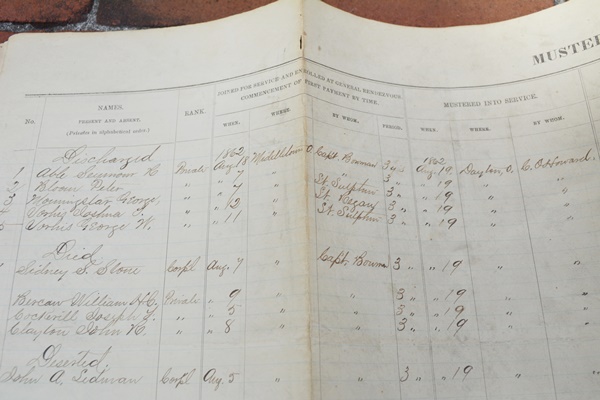 MUSTER
No. NAMES. PRESENT AND ABSENT. (Privates in alphabetical order.) RANK. JOINED FOR SERVICE AND ENROLLED AT GENERAL RENDEZVOUS. COMMENCEMENT OF FIRST PAYMENT BY TIME. MUSTERED INTO SERVICE.
WHEN. WHERE. BY WHOM. PERIOD. WHEN. WHERE. BY WHOM.
Discharged 1862 1862
1 Able Seymour H Private Aug. 18 Middletown O Capt. Bowman 3 Aug. 19, Dayton, O. C. O. Howard.
2 Bloom Peter " " 7 " " 3 " " " 19 " "
3 Morningstar George, " " 7 " Lt. Sulphin 3 " " " 19 " "
4 Vorhis Joshua I. " " 12 " Lt. 3 " " " 19 " "
5 Vorhis George W. " " 11 " Lt. Sulphin 3 " " " 19 " "
Died
" Sidney S. Stone Corpl Aug. 7 " Capt. Bowma 3 " " " 19 " "
William H. C. Private " 9 " 3 " " " 19 " "
Cockerill Joseph " " 5 " 3 " " " 19 " "
Clayton John K. " " 8 " 3 " " " 19 " "
Deserted.
John A. Sidman Corpl Aug. 5 " " 3 " " " 19 " "